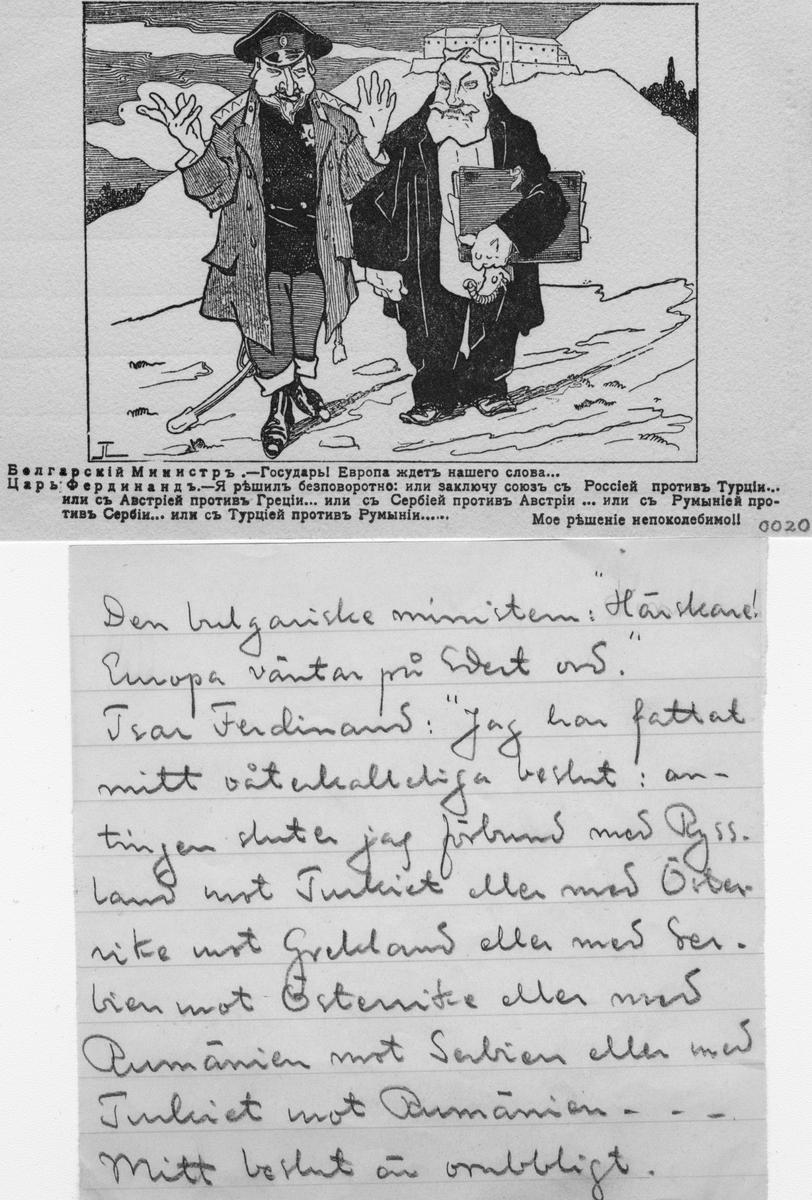 Болгарскій Министръ.—Государь! Европа ждетъ нашего слова...
Царь Фердинандъ.—Я рѣшилъ безповоротно: или заключу союзъ съ Россіей противъ Турціи...
или съ Австріей противъ Греціи... или съ Сербіей противъ Австріи ... или съ Румыніей про-
тивъ Сербіи... или съ Турціей противъ Румыніи......
Мое рѣшеніе непоколебимо!!
0020
Den bulgariske ministern: "Härskare!
Europa väntar på Edert ord."
Tsar Ferdinand: "Jag har fattat
mitt oåterkalleliga beslut: an-
tingen sluter jag förbund med Ryss-
land mot Turkiet eller med Öster-
rike mot Grekland eller med Ser-
bien mot Österrike eller med
Rumänien mot Serbien eller med
Turkiet mot Rumänien - - -
Mitt beslut är orubbligt.